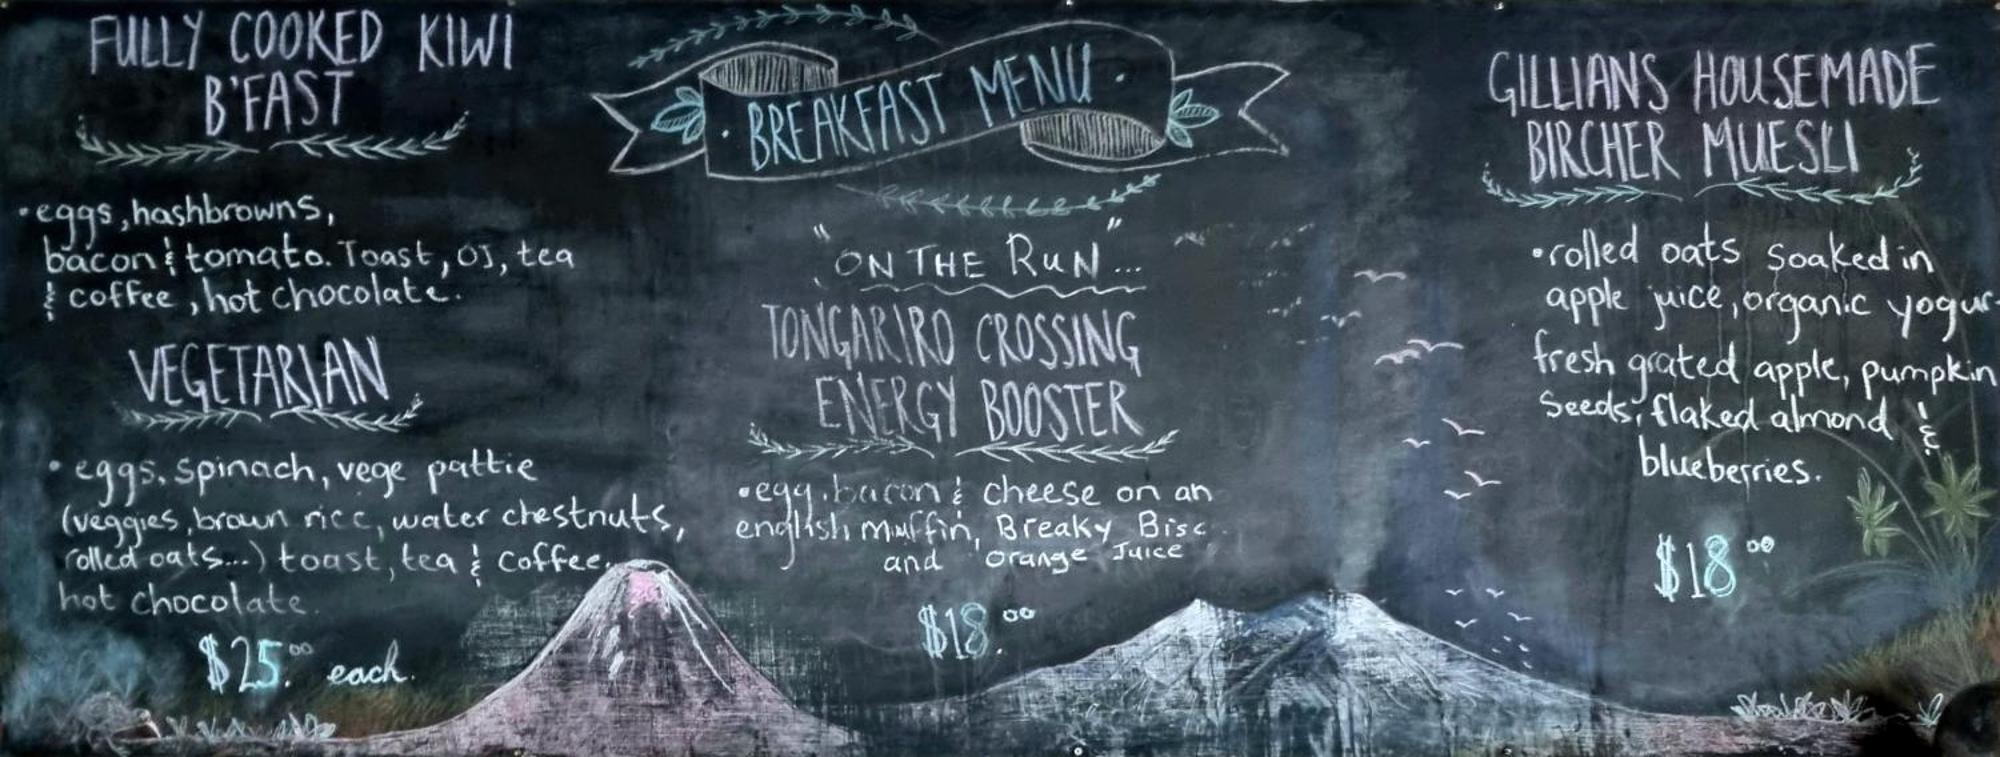 FULLY COOKED KIWI
B'FAST
• eggs, hashbrowns,
bacon & tomato. Toast, OJ, tea
& coffee, hot chocolate.
VEGETARIAN
• eggs, spinach, vege pattie
(veggies, brown rice, water chestnuts,
rolled oats...) toast, tea & coffee.
hot chocolate.
$25.00 each.
• BREAKFAST MENU •
"ON THE RUN"...
TONGARIRO CROSSING
ENERGY BOOSTER
• egg, bacon & cheese on an
english muffin, Breaky Bisc
and orange Juice
$18.00
GILLIANS HOUSEMADE
BIRCHER MUESLI
• rolled oats soaked in
apple juice, organic yogur
fresh grated apple, pumpkin
seeds, flaked almond &
blueberries.
$18 00